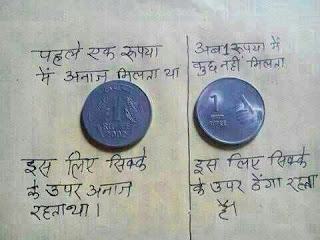 पहले एक रूपया
में अनाज मिलता था
1
2002
इस लिए सिक्के
के उपर अनाज
रहता था।
अब 1 रूपया में
कुछ नहीं मिलता
1
इस लिए सिक्के
के उपर ठेंगा रहता
है।